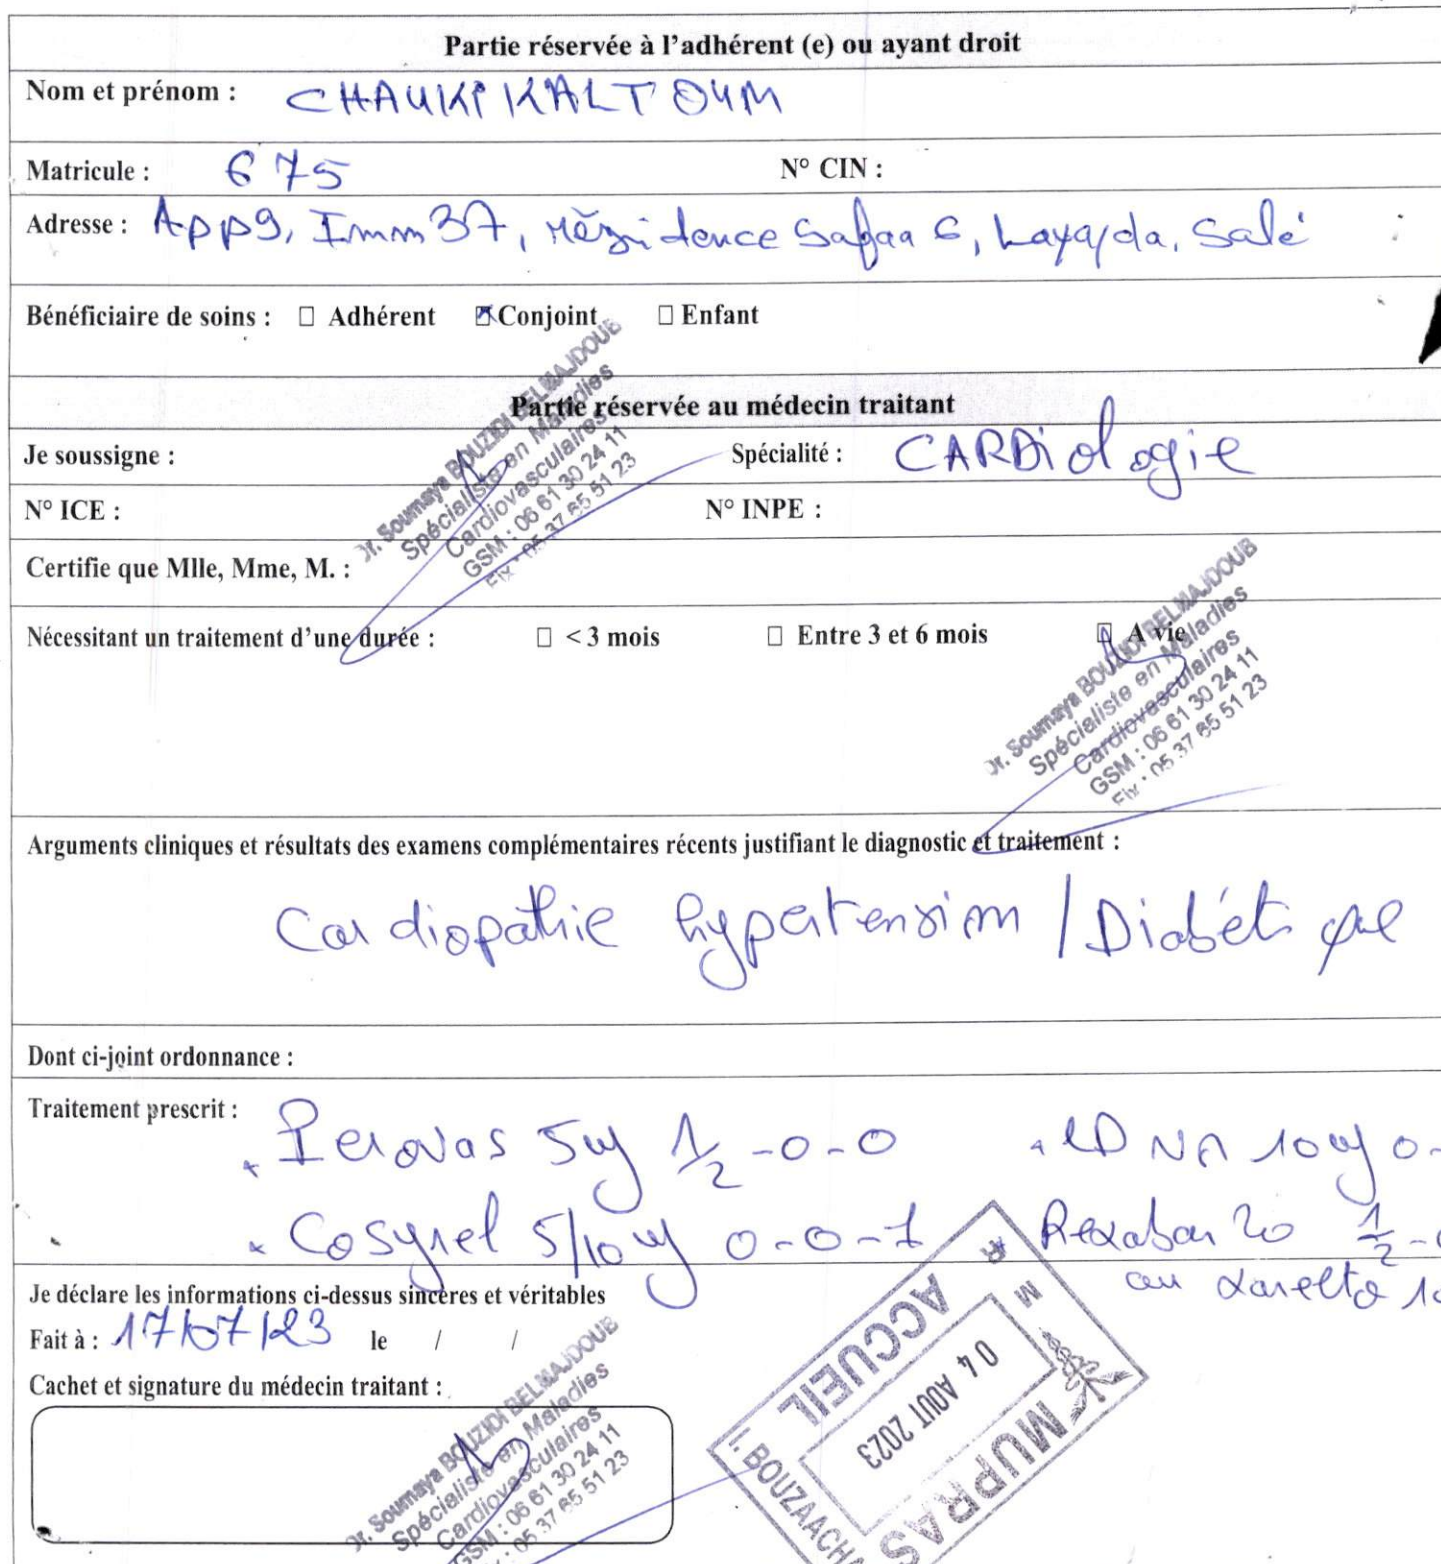 Partie réservée à l'adhérent (e) ou ayant droit
Nom et prénom : CHAUKI KALTOUM
Matricule : 675 N° CIN :
Adresse : App9, Imm 37, rézidence Safaa 6, Layayda, Salé
Bénéficiaire de soins : ☐ Adhérent ☒ Conjoint ☐ Enfant
Partie réservée au médecin traitant
Dr. Soumaya BOUZIDI BELMAJDOUB
Spécialiste en Maladies
Cardiovasculaires
GSM : 06 61 30 24 11
Fix : 05 37 85 51 23
Je soussigne : Spécialité : CARDiologie
N° ICE : N° INPE :
Certifie que Mlle, Mme, M. :
Nécessitant un traitement d'une durée : ☐ < 3 mois ☐ Entre 3 et 6 mois ☒ A vie
Dr. Soumaya BOUZIDI BELMAJDOUB
Spécialiste en Maladies
Cardiovasculaires
GSM : 06 61 30 24 11
Fix : 05 37 85 51 23
Arguments cliniques et résultats des examens complémentaires récents justifiant le diagnostic et traitement :
Cardiopathie hypertension / Diabétique
Dont ci-joint ordonnance :
Traitement prescrit :
5mg 1/2 -0-0 10mg 0-
Cosyrel 5/10mg 0-0-1 20 1/2 -
ou Xarelto
Je déclare les informations ci-dessus sincères et véritables
Fait à : 17/07/23 le / /
Cachet et signature du médecin traitant :
Dr. Soumaya BOUZIDI BELMAJDOUB
Spécialiste en Maladies
Cardiovasculaires
GSM : 06 61 30 24 11
: 05 37 85 51 23
ACCUEIL
04 AOUT 2023
MUPRAS
I. BOUZAACHA